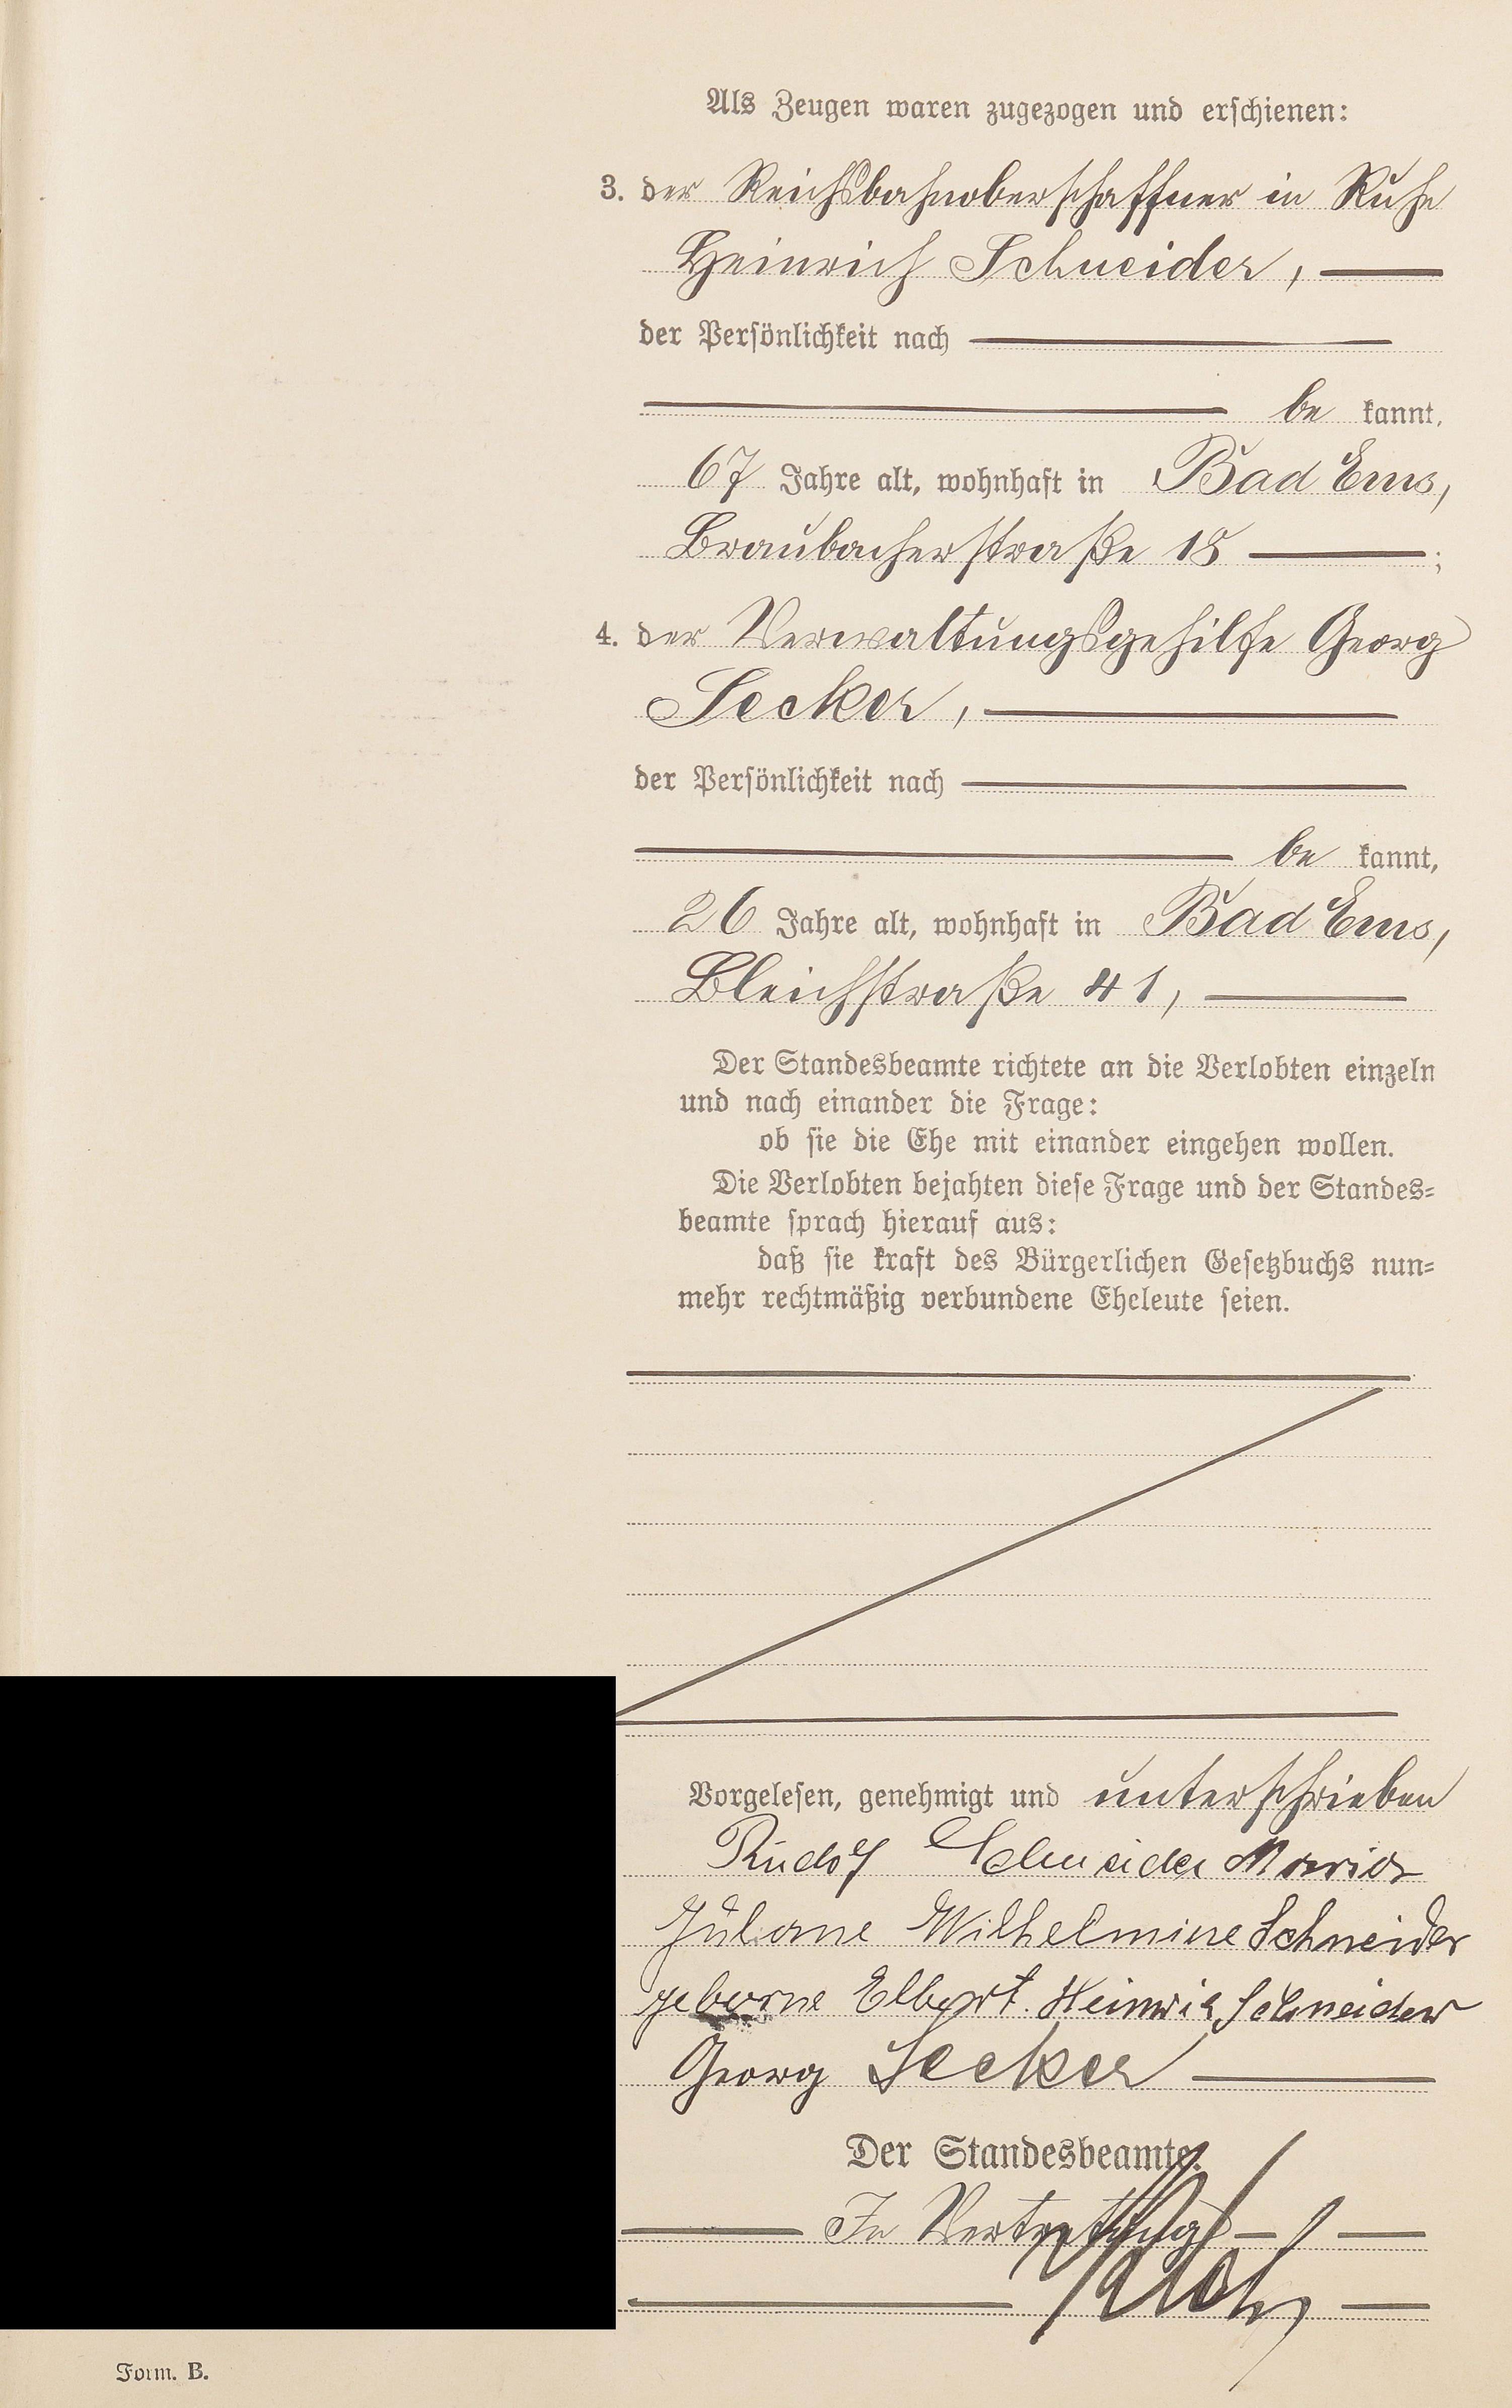 Als Zeugen waren zugezogen und erschienen:
3. der Reichsbahnoberschaffner in Ruhe
Heinrich Schneider,
der Persönlichkeit nach
be kannt,
67 Jahre alt, wohnhaft in Bad Ems,
Braubacherstraße 18 ;
4. der Verwaltungsgehilfe Georg
Secker,
der Persönlichkeit nach
be kannt,
26 Jahre alt, wohnhaft in Bad Ems,
Bleichstraße 41,
Der Standesbeamte richtete an die Verlobten einzeln
und nach einander die Frage:
ob sie die Ehe mit einander eingehen wollen.
Die Verlobten bejahten diese Frage und der Standes-
beamte sprach hierauf aus:
daß sie kraft des Bürgerlichen Gesetzbuchs nun-
mehr rechtmäßig verbundene Eheleute seien.
Vorgelesen, genehmigt und unterschrieben
Rudolf Schneider Maria
Juliane Wilhelmine Schneider
geborne Elbert. Heinrich Schneider
Georg Secker
Der Standesbeamte.
In Vertretung
Form. B.